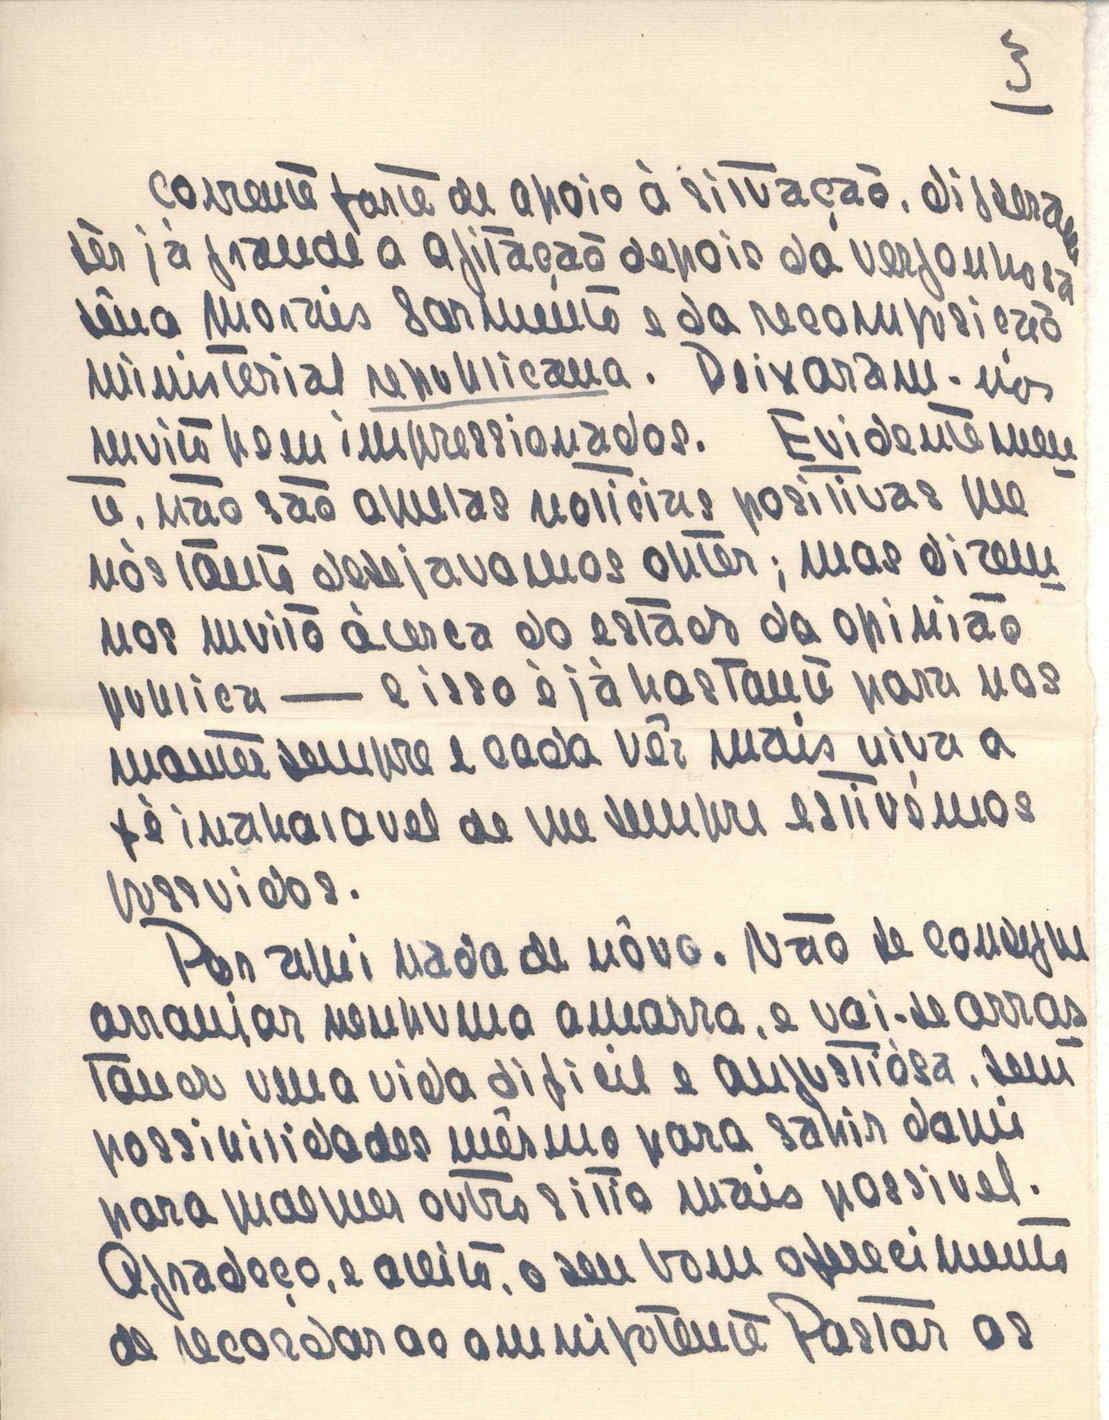 3
corrente forte de apoio à situação, disseram
sêr já grande a agitação depois da vergonhosa
sêna Morais Sarmento e da recomposição
ministerial republicana. Deixaram-nos
muito bem impressionados. Evidentemen
te, não são aquelas noticias positivas que
nós tanto desejavamos obter; mas dizem
nos muito àcerca do estado da opinião
publica — e isso é já bastante para nos
mantêr sempre e cada vêz mais viva a
fé inabalavel de que sempre estivémos
possuidos.
Por aqui nada de nôvo. Não se consegue
arranjar nenhuma amarra, e vai-se arras
tando uma vida dificil e angustiósa, sem
possibilidades mêsmo para sahir daqui
para qualquer outro sitio mais possivel.
Agradeço, e aceito, o seu bom oferecimento
de recordar ao omnipotente Pastôr os